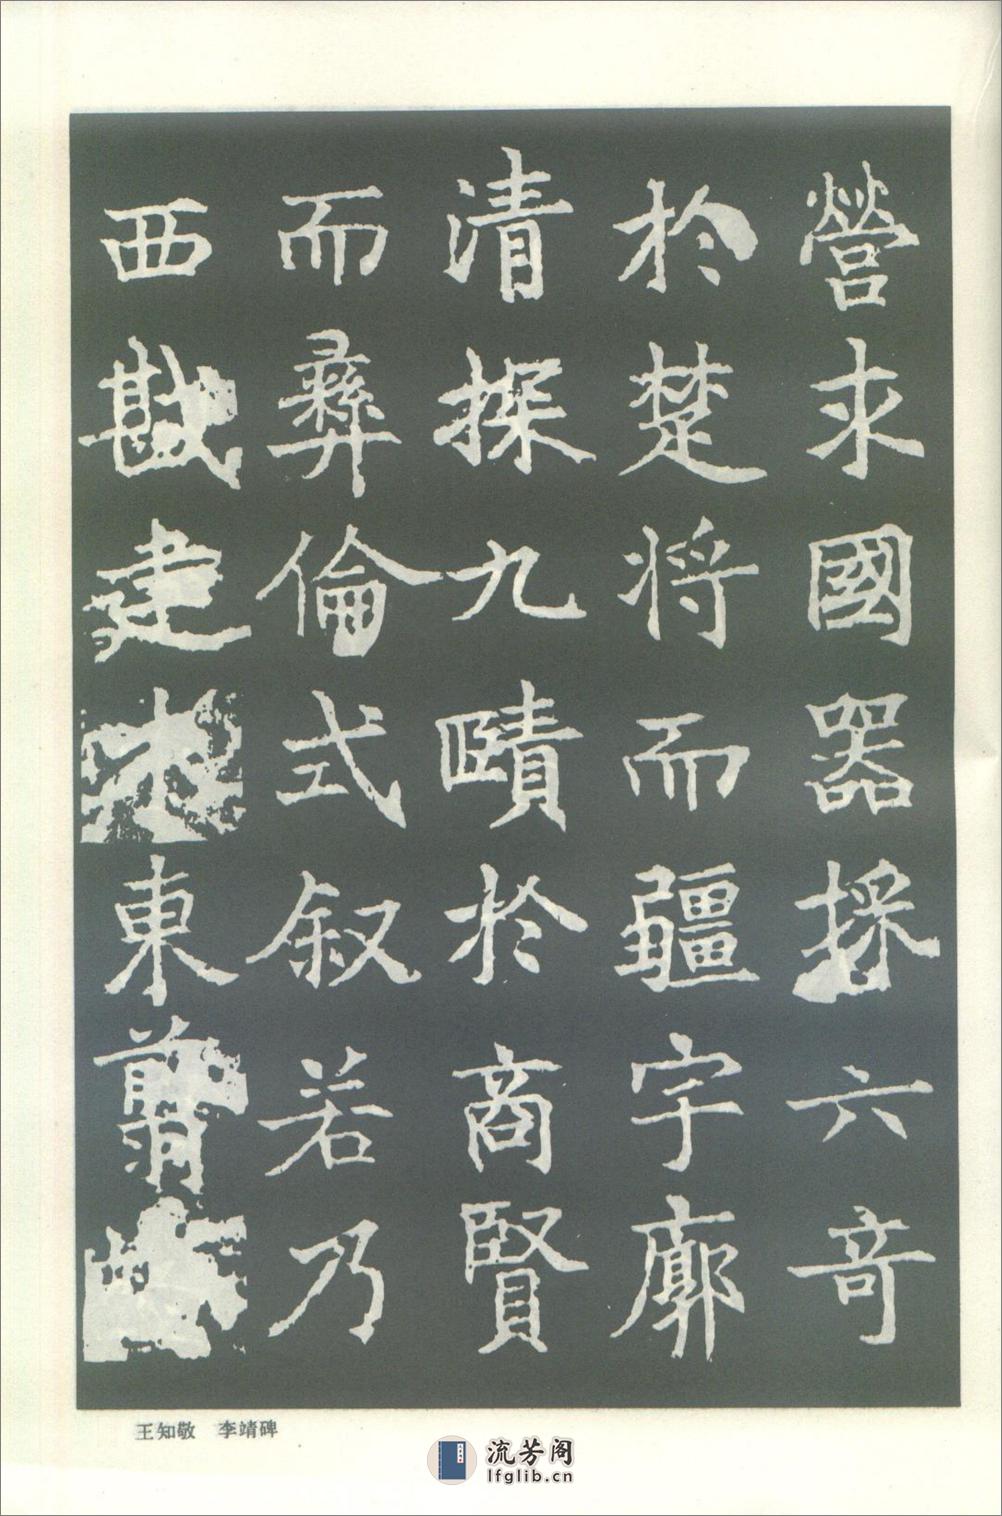 營求國器揬六奇
於楚將而疆宇廓
清探九賾於商賢
而彝倫式叙若乃
西戡建東翦
王知敬 李靖碑
流芳阁
lfglib.cn